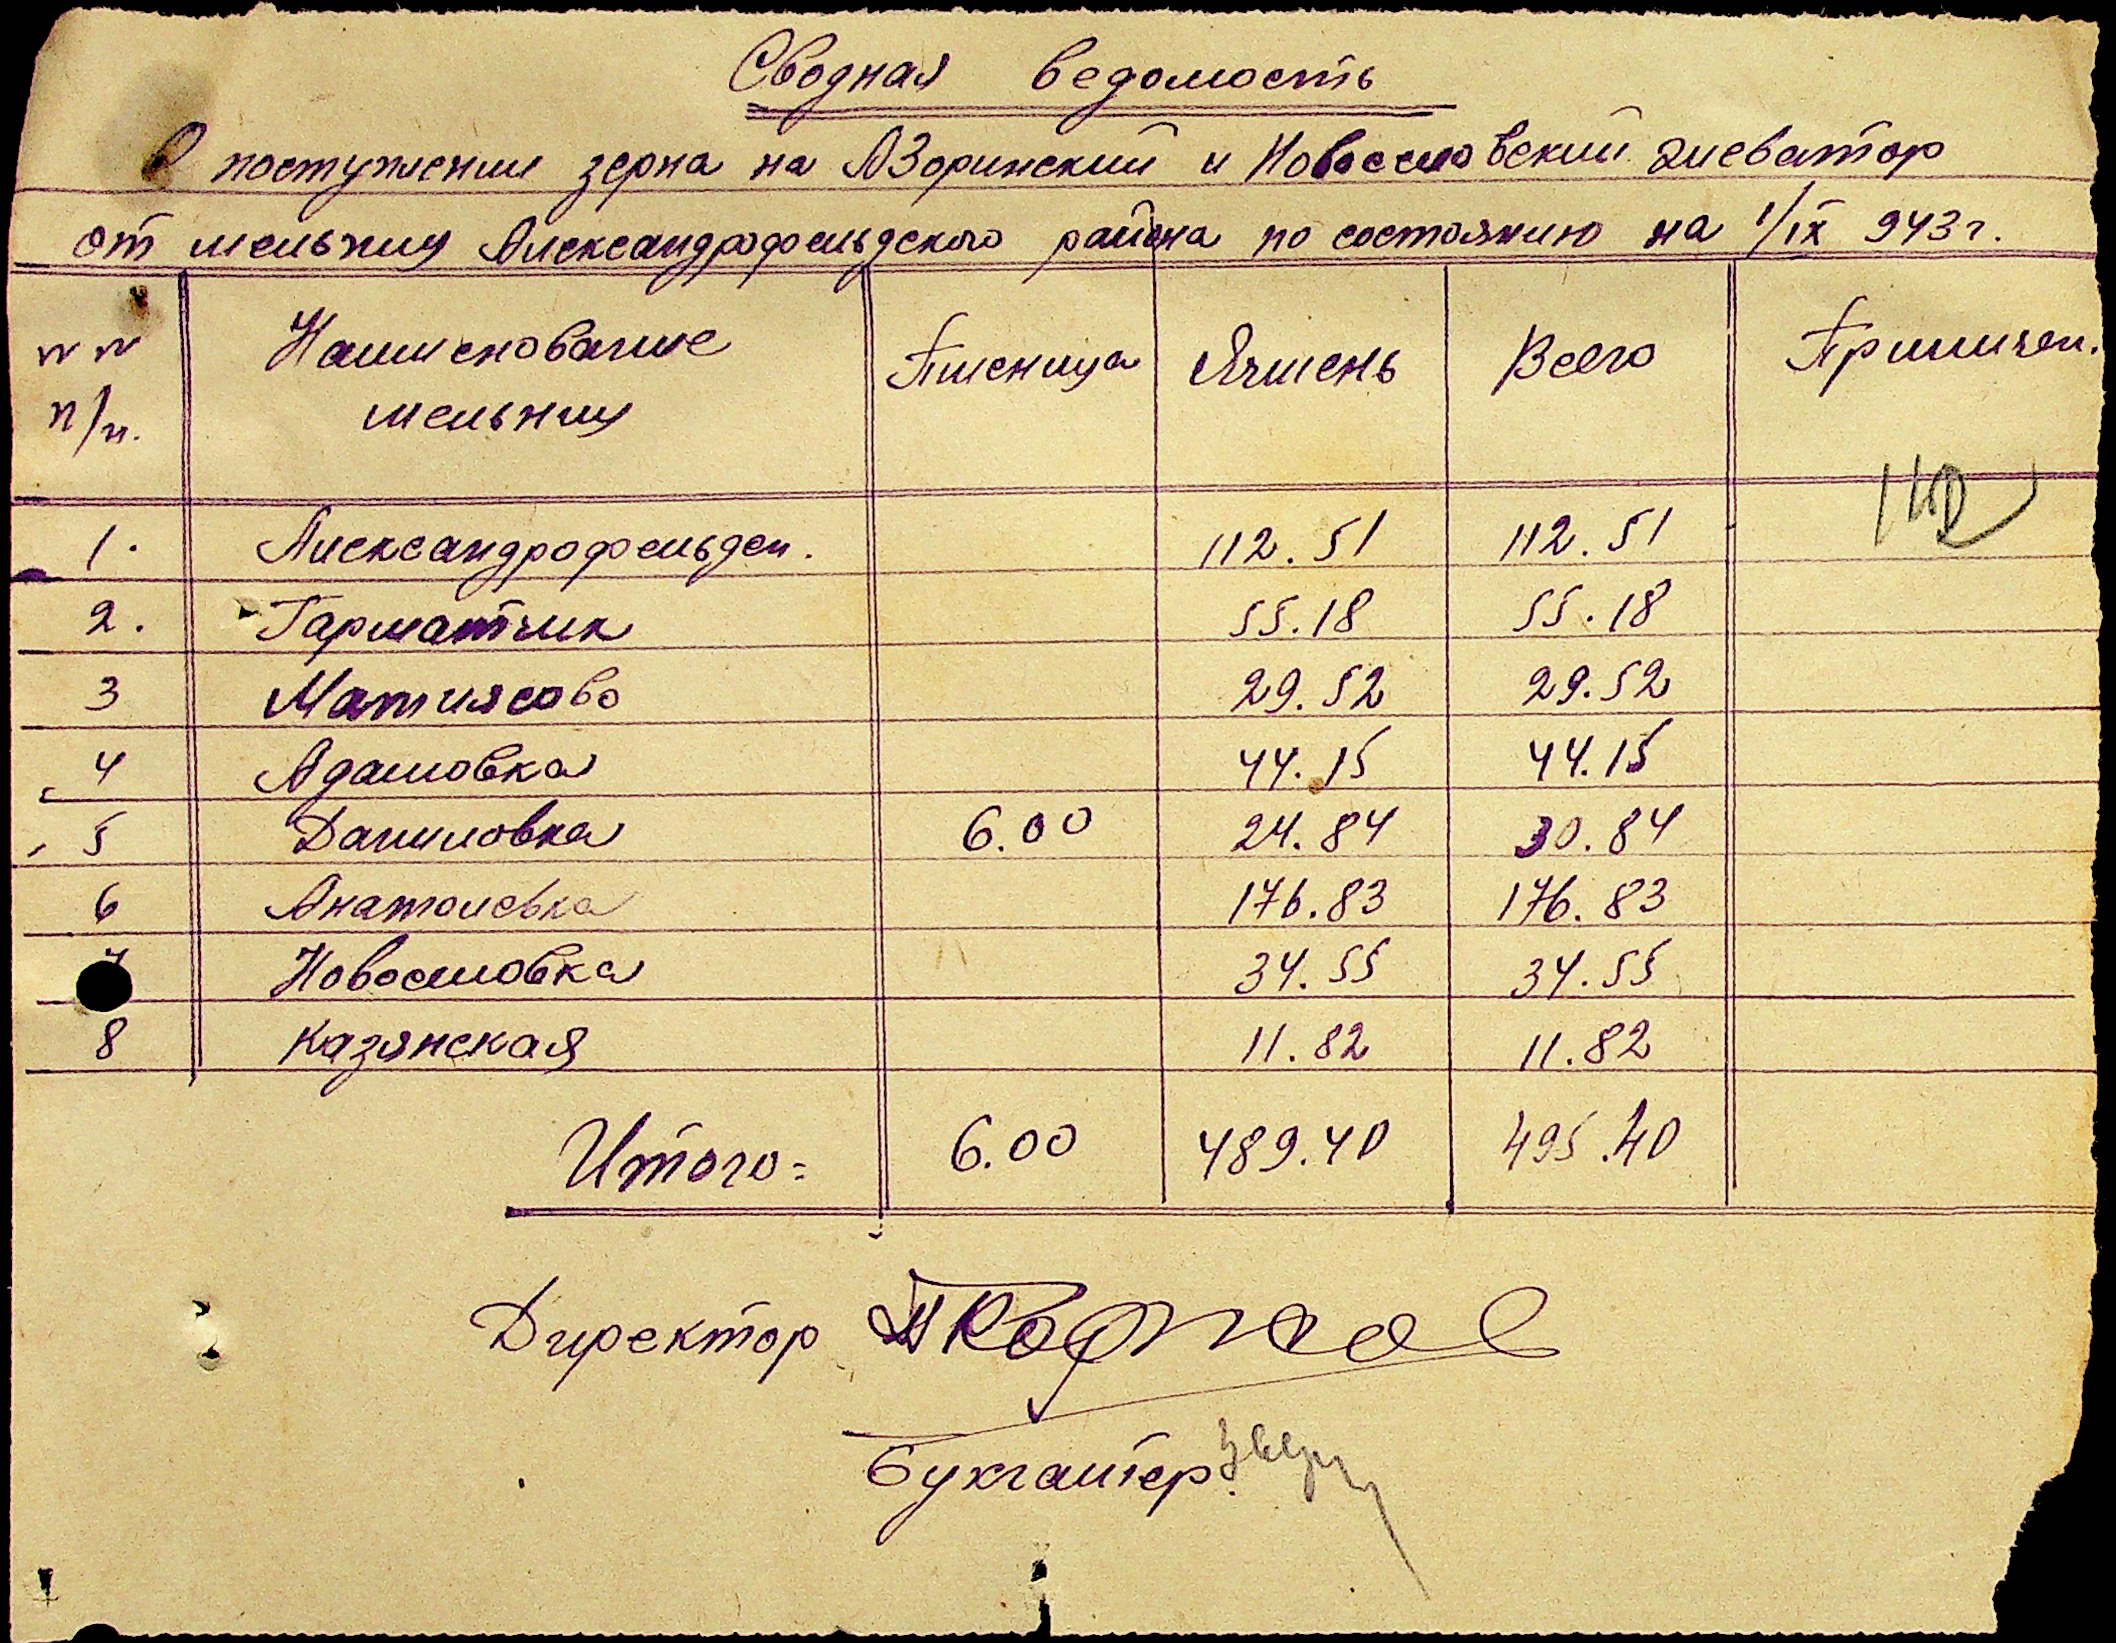 Сводная ведомость
О поступлении зерна на АЗоринский и Новоселовский элеватор
от мельниц Александрофельдского района по состоянию на 1/IX 943 г.
№ № Наименование Пшеница Ячмень Всего Примечан.
п/п. мельниц
1. Александрофельден. 112.51 112.51
2. Гарматчик 55.18 55.18
3 Матиясово 29.52 29.52
4 Адамовка 44.15 44.15
5 Даниловка 6.00 24.84 30.84
6 Анатолевка 176.83 176.83
7 Новоселовка 34.55 34.55
8 Казянская 11.82 11.82
Итого= 6.00 489.40 495.40
Директор
Бухгалтер.